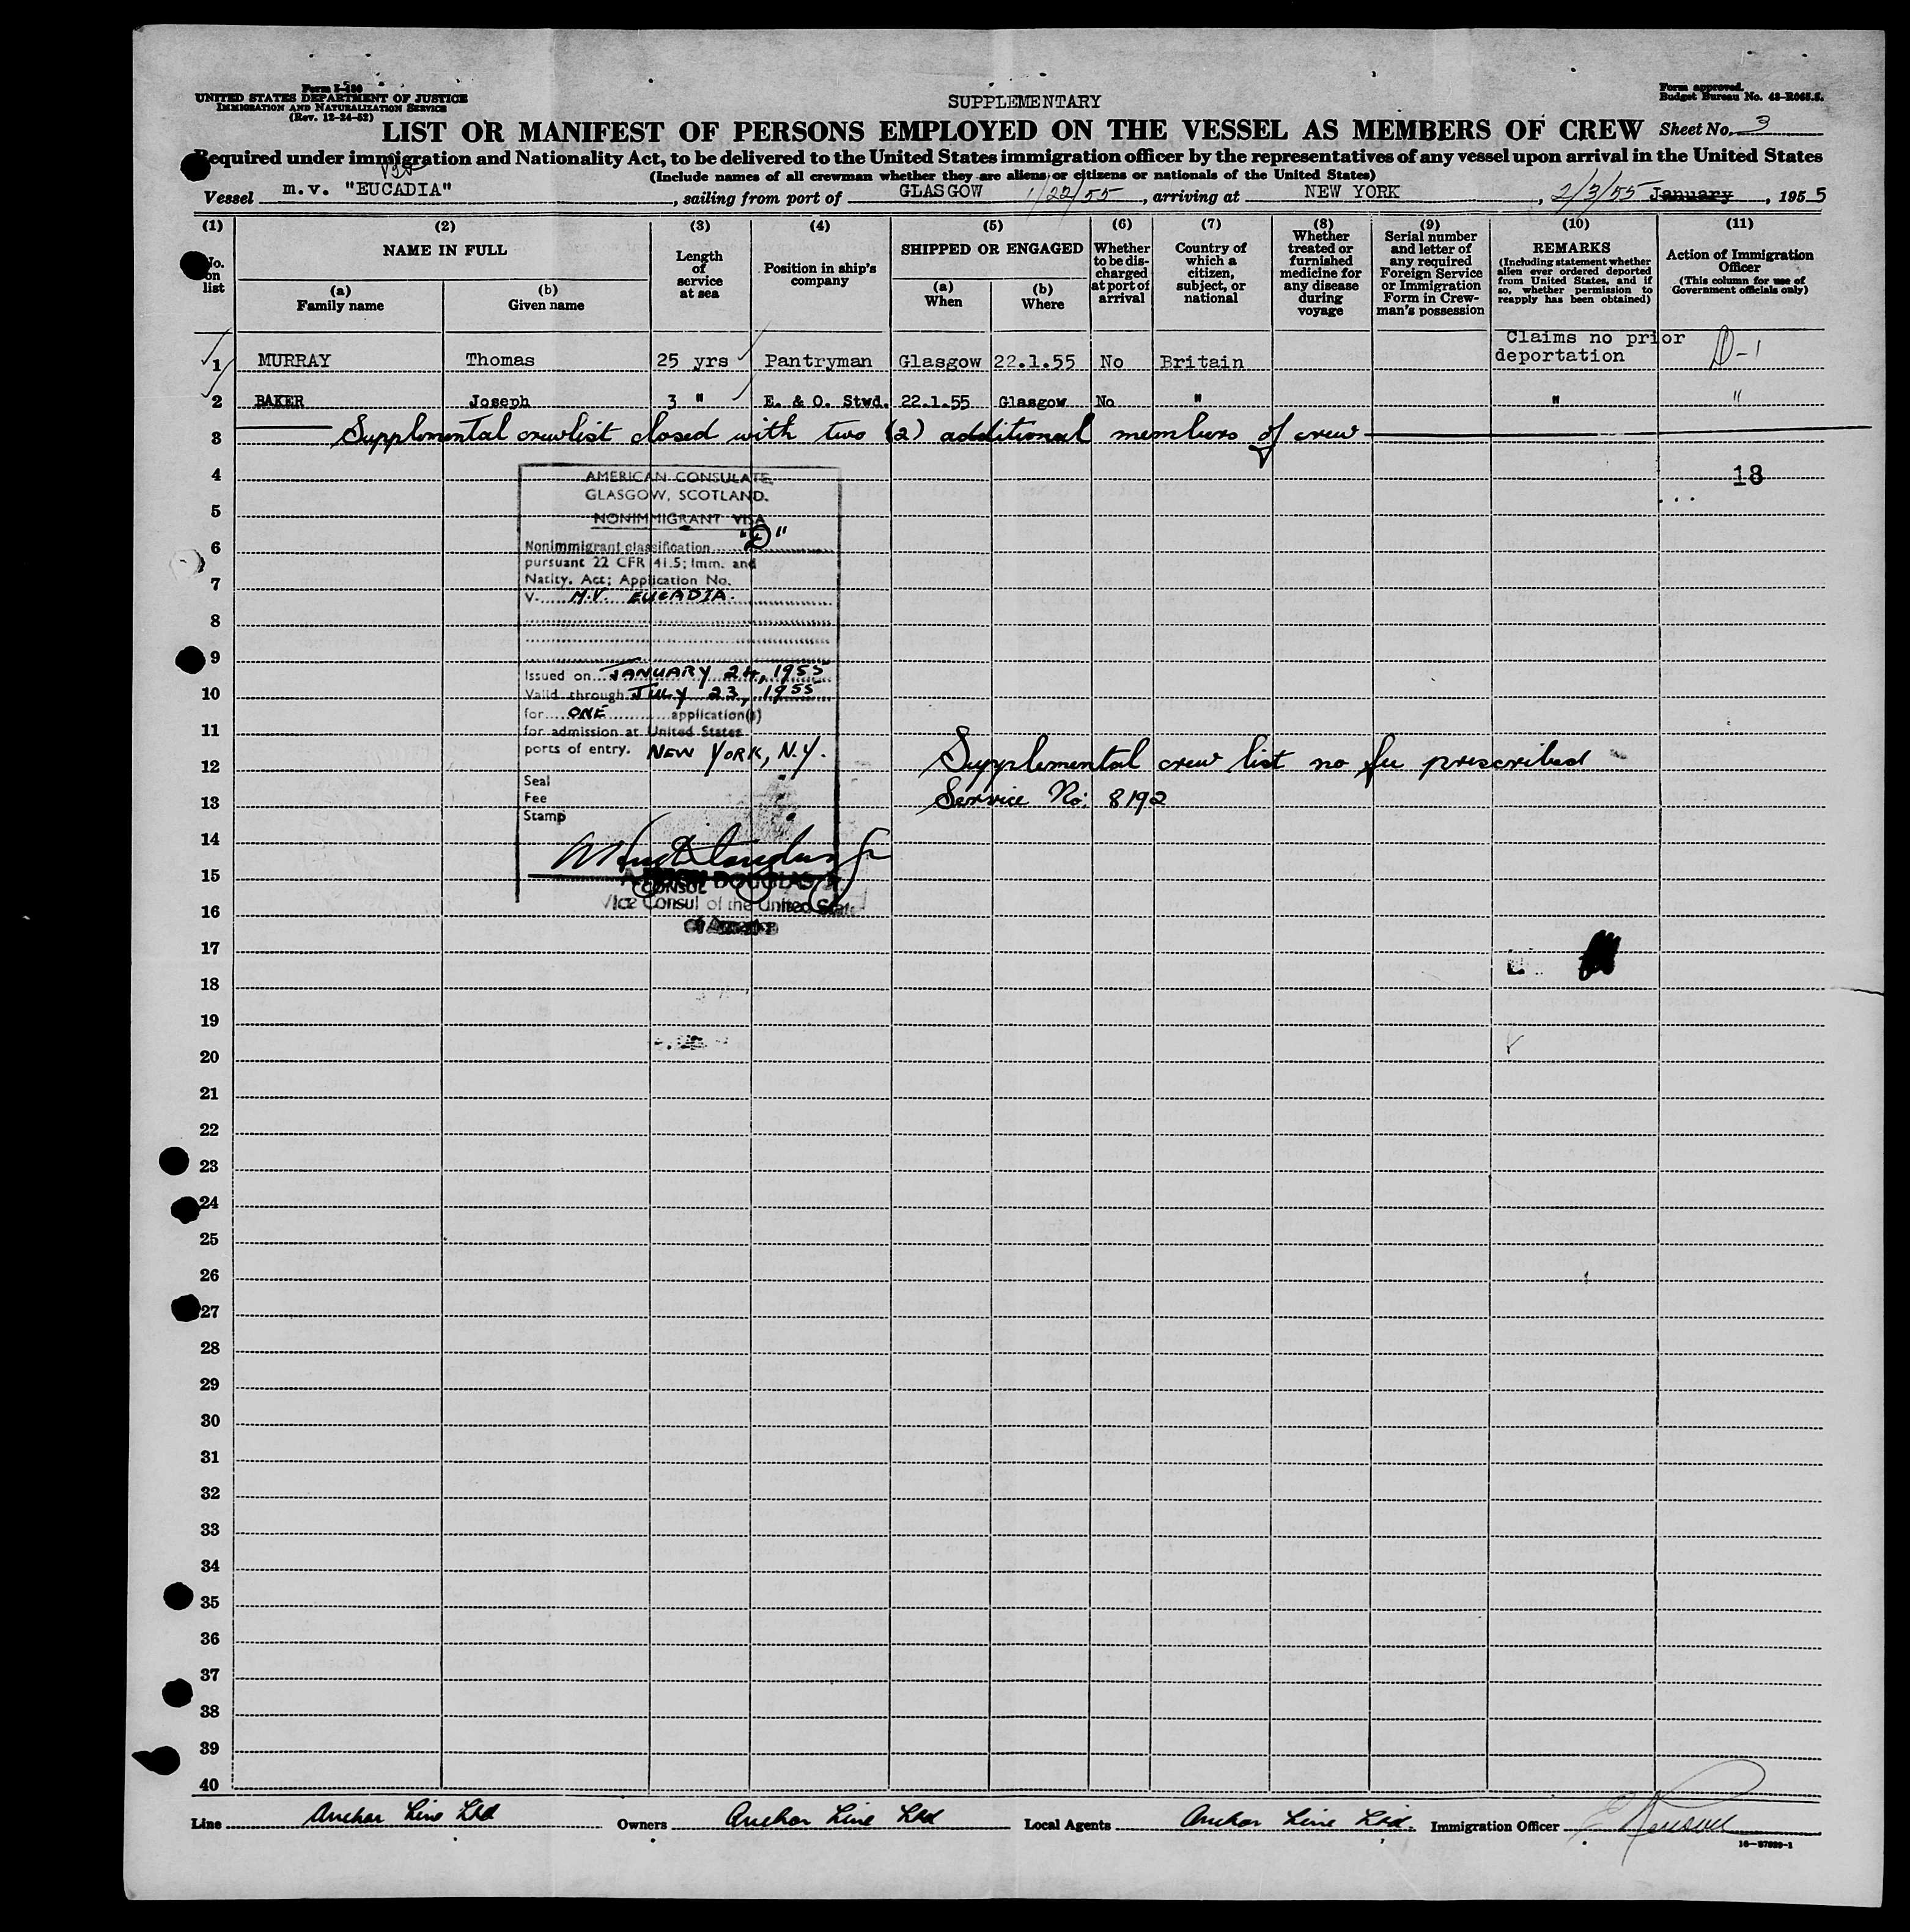 Form I-480
UNITED STATES DEPARTMENT OF JUSTICE
IMMIGRATION AND NATURALIZATION SERVICE
(Rev. 12-24-52)
SUPPLEMENTARY
Form approved.
Budget Bureau No. 43-R065.5.
LIST OR MANIFEST OF PERSONS EMPLOYED ON THE VESSEL AS MEMBERS OF CREW Sheet No. 3
Required under immigration and Nationality Act, to be delivered to the United States immigration officer by the representatives of any vessel upon arrival in the United States
(Include names of all crewman whether they are aliens or citizens or nationals of the United States)
Vessel m.v. "EUCADIA", sailing from port of GLASGOW 1/22/55, arriving at NEW YORK, 2/3/55 January, 1955
(1) (2) (3) (4) (5) (6) (7) (8) (9) (10) (11)
No. on list
NAME IN FULL
(a) Family name
(b) Given name
Length of service at sea
Position in ship's company
SHIPPED OR ENGAGED
(a) When
(b) Where
Whether to be discharged at port of arrival
Country of which a citizen, subject, or national
Whether treated or furnished medicine for any disease during voyage
Serial number and letter of any required Foreign Service or Immigration Form in Crewman's possession
REMARKS
(Including statement whether alien ever ordered deported from United States, and if so, whether permission to reapply has been obtained)
Action of Immigration Officer
(This column for use of Government officials only)
1 MURRAY Thomas 25 yrs Pantryman Glasgow 22.1.55 No Britain Claims no prior deportation D-1
2 BAKER Joseph 3 " E. & O. Stwd. 22.1.55 Glasgow No " " "
3 Supplmental crewlist closed with two (2) additional members of crew
4
18
5
6
7
8
9
10
11
12
13
14
15
16
17
18
19
20
21
22
23
24
25
26
27
28
29
30
31
32
33
34
35
36
37
38
39
40
AMERICAN CONSULATE
GLASGOW, SCOTLAND.
NONIMMIGRANT VISA
Nonimmigrant classification "D"
pursuant 22 CFR 41.5; Imm. and
Natlty. Act; Application No.
V. M.V. EUCADIA.
Issued on JANUARY 24, 1955
Valid through JULY 23, 1955
for ONE application(s)
for admission at United States
ports of entry. NEW YORK, N.Y.
Seal
Fee
Stamp
DOUGLAS
CONSUL
Vice Consul of the United States
Supplemental crew list no fee prescribed
Service No: 8192
Line Anchor Line Ltd Owners Anchor Line Ltd Local Agents Anchor Line Ltd. Immigration Officer